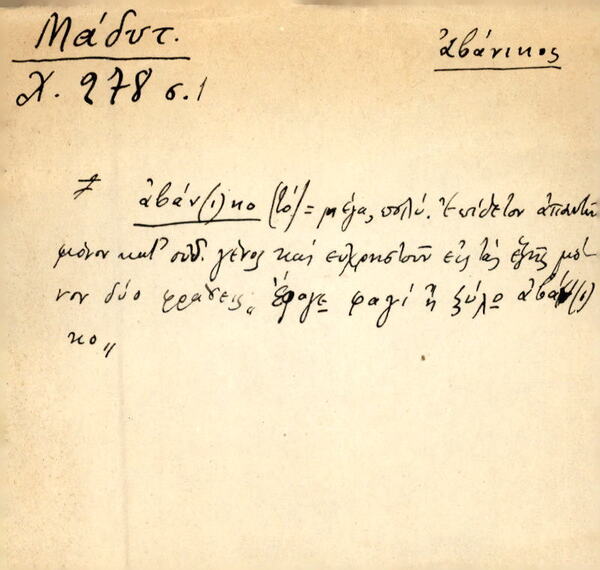 Μάδυτ.
ἀβάνικος
χ. 278 σ. 1
≠ ἀβάν(ι)κο (τό) = μέγα, πολύ. Ἐπίθετον ἀπαντῶν
μόνον κατ' οὐδ. γένος καὶ εὐχρηστοῦν εἰς τὰς ἑξῆς μό-
νον δύο φράσεις „ ἔφαγε φαγί ἢ ξύλο ἀβάν(ι)
κο „